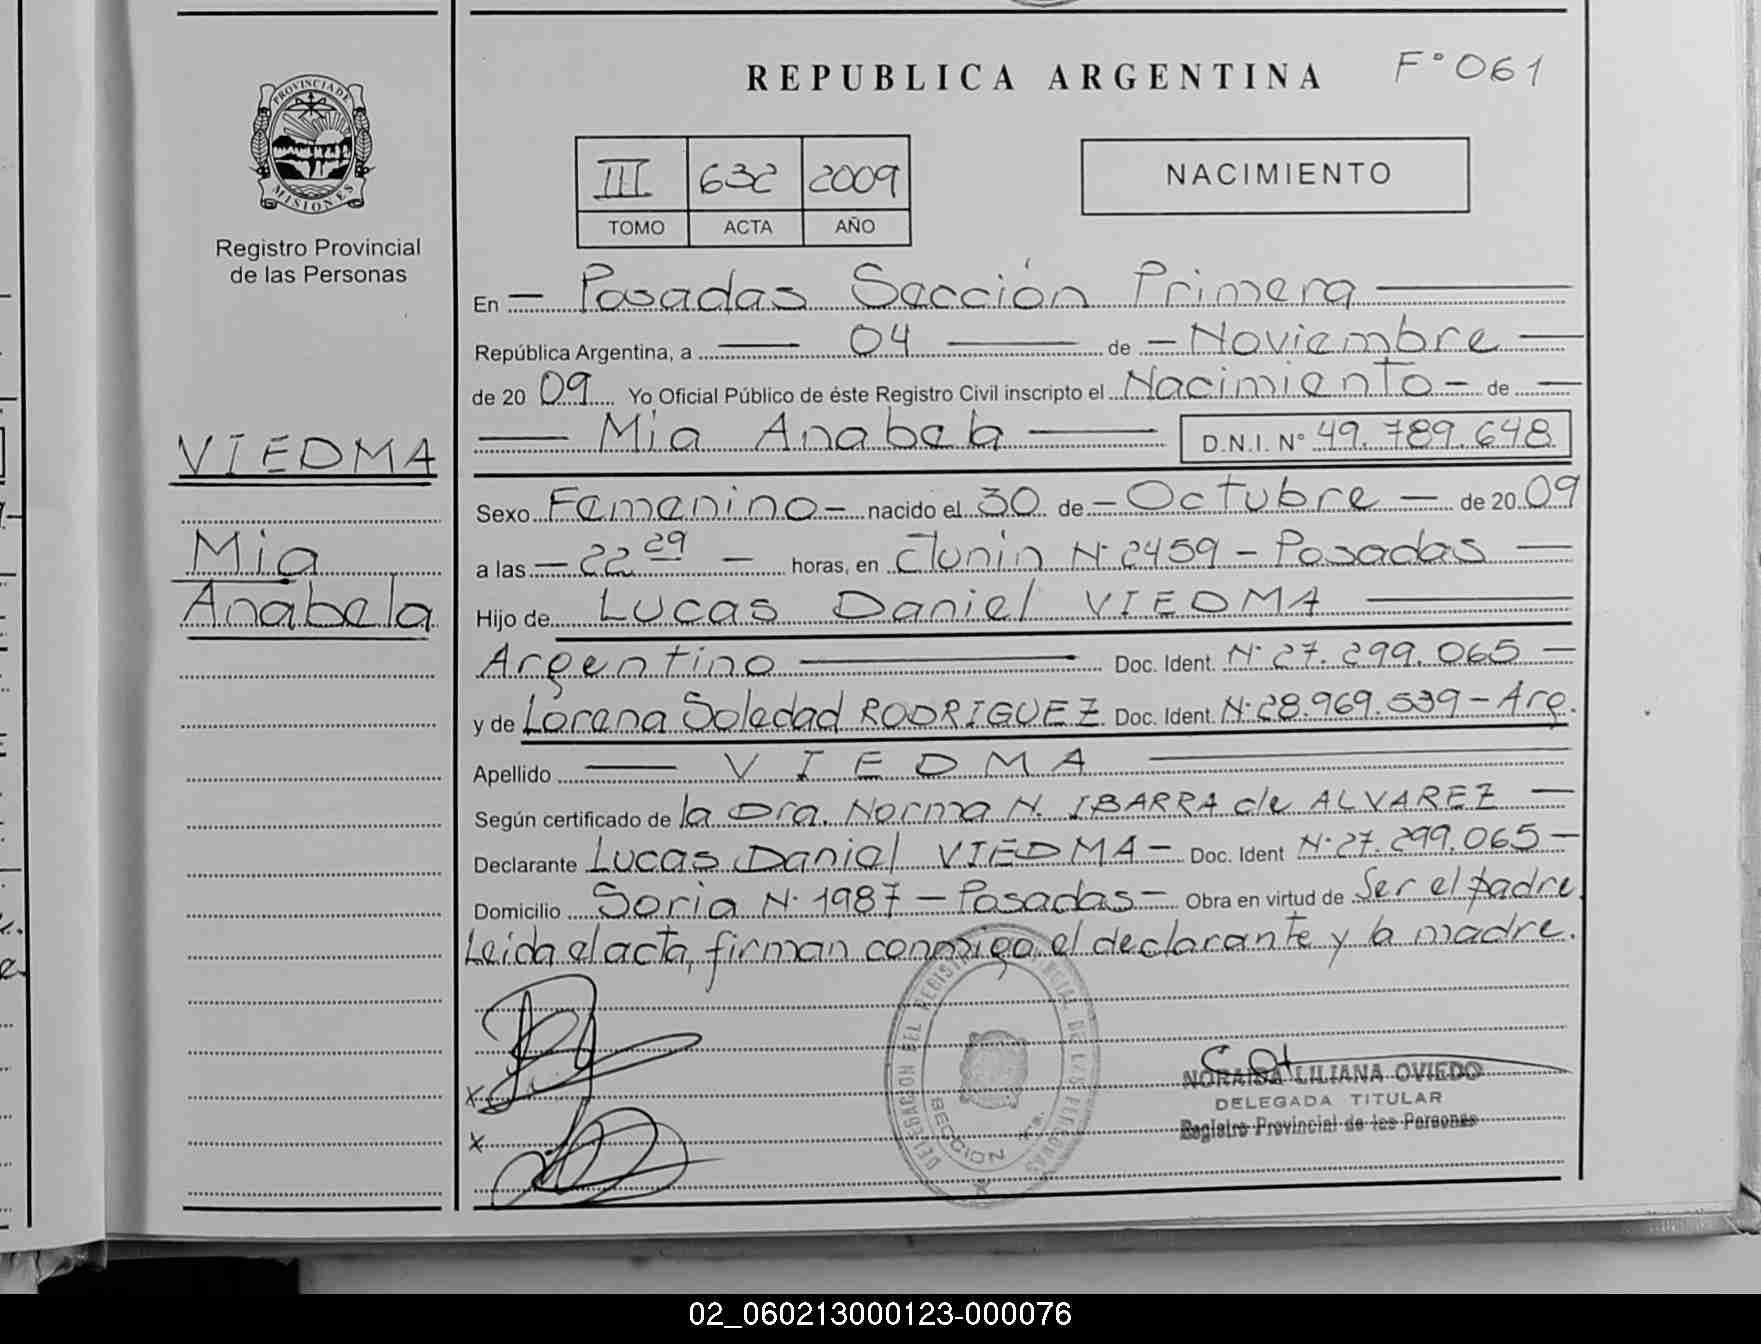 REPUBLICA ARGENTINA
F° 061
PROVINCIA DE
MISIONES
Registro Provincial
de las Personas
III 632 2009
TOMO ACTA AÑO
NACIMIENTO
VIEDMA
Mia
Anabela
En — Posadas Sección Primera —
República Argentina, a — 04 — de — Noviembre —
de 20 09 Yo Oficial Público de éste Registro Civil inscripto el Nacimiento — de —
— Mia Anabela — D.N.I. N° 49.789.648
Sexo Femenino — nacido el 30 de — Octubre — de 20 09
a las — 22 29 — horas, en Junin N° 2459 - Posadas —
Hijo de Lucas Daniel VIEDMA —
Argentino — Doc. Ident. N° 27.299.065 —
y de Lorena Soledad RODRIGUEZ Doc. Ident. N° 28.969.539 - Arg.
Apellido — VIEDMA —
Según certificado de la Dra. Norma N. IBARRA de ALVAREZ —
Declarante Lucas Daniel VIEDMA — Doc. Ident N° 27.299.065 —
Domicilio Soria N° 1987 - Posadas — Obra en virtud de Ser el padre.
Leida el acta, firman conmigo el declarante y la madre.
x
x
DELEGACION DEL REGISTRO PROVINCIAL DE LAS PERSONAS
SECCION 1ra.
NORAIDA LILIANA OVIEDO
DELEGADA TITULAR
Registro Provincial de las Personas
02_060213000123-000076